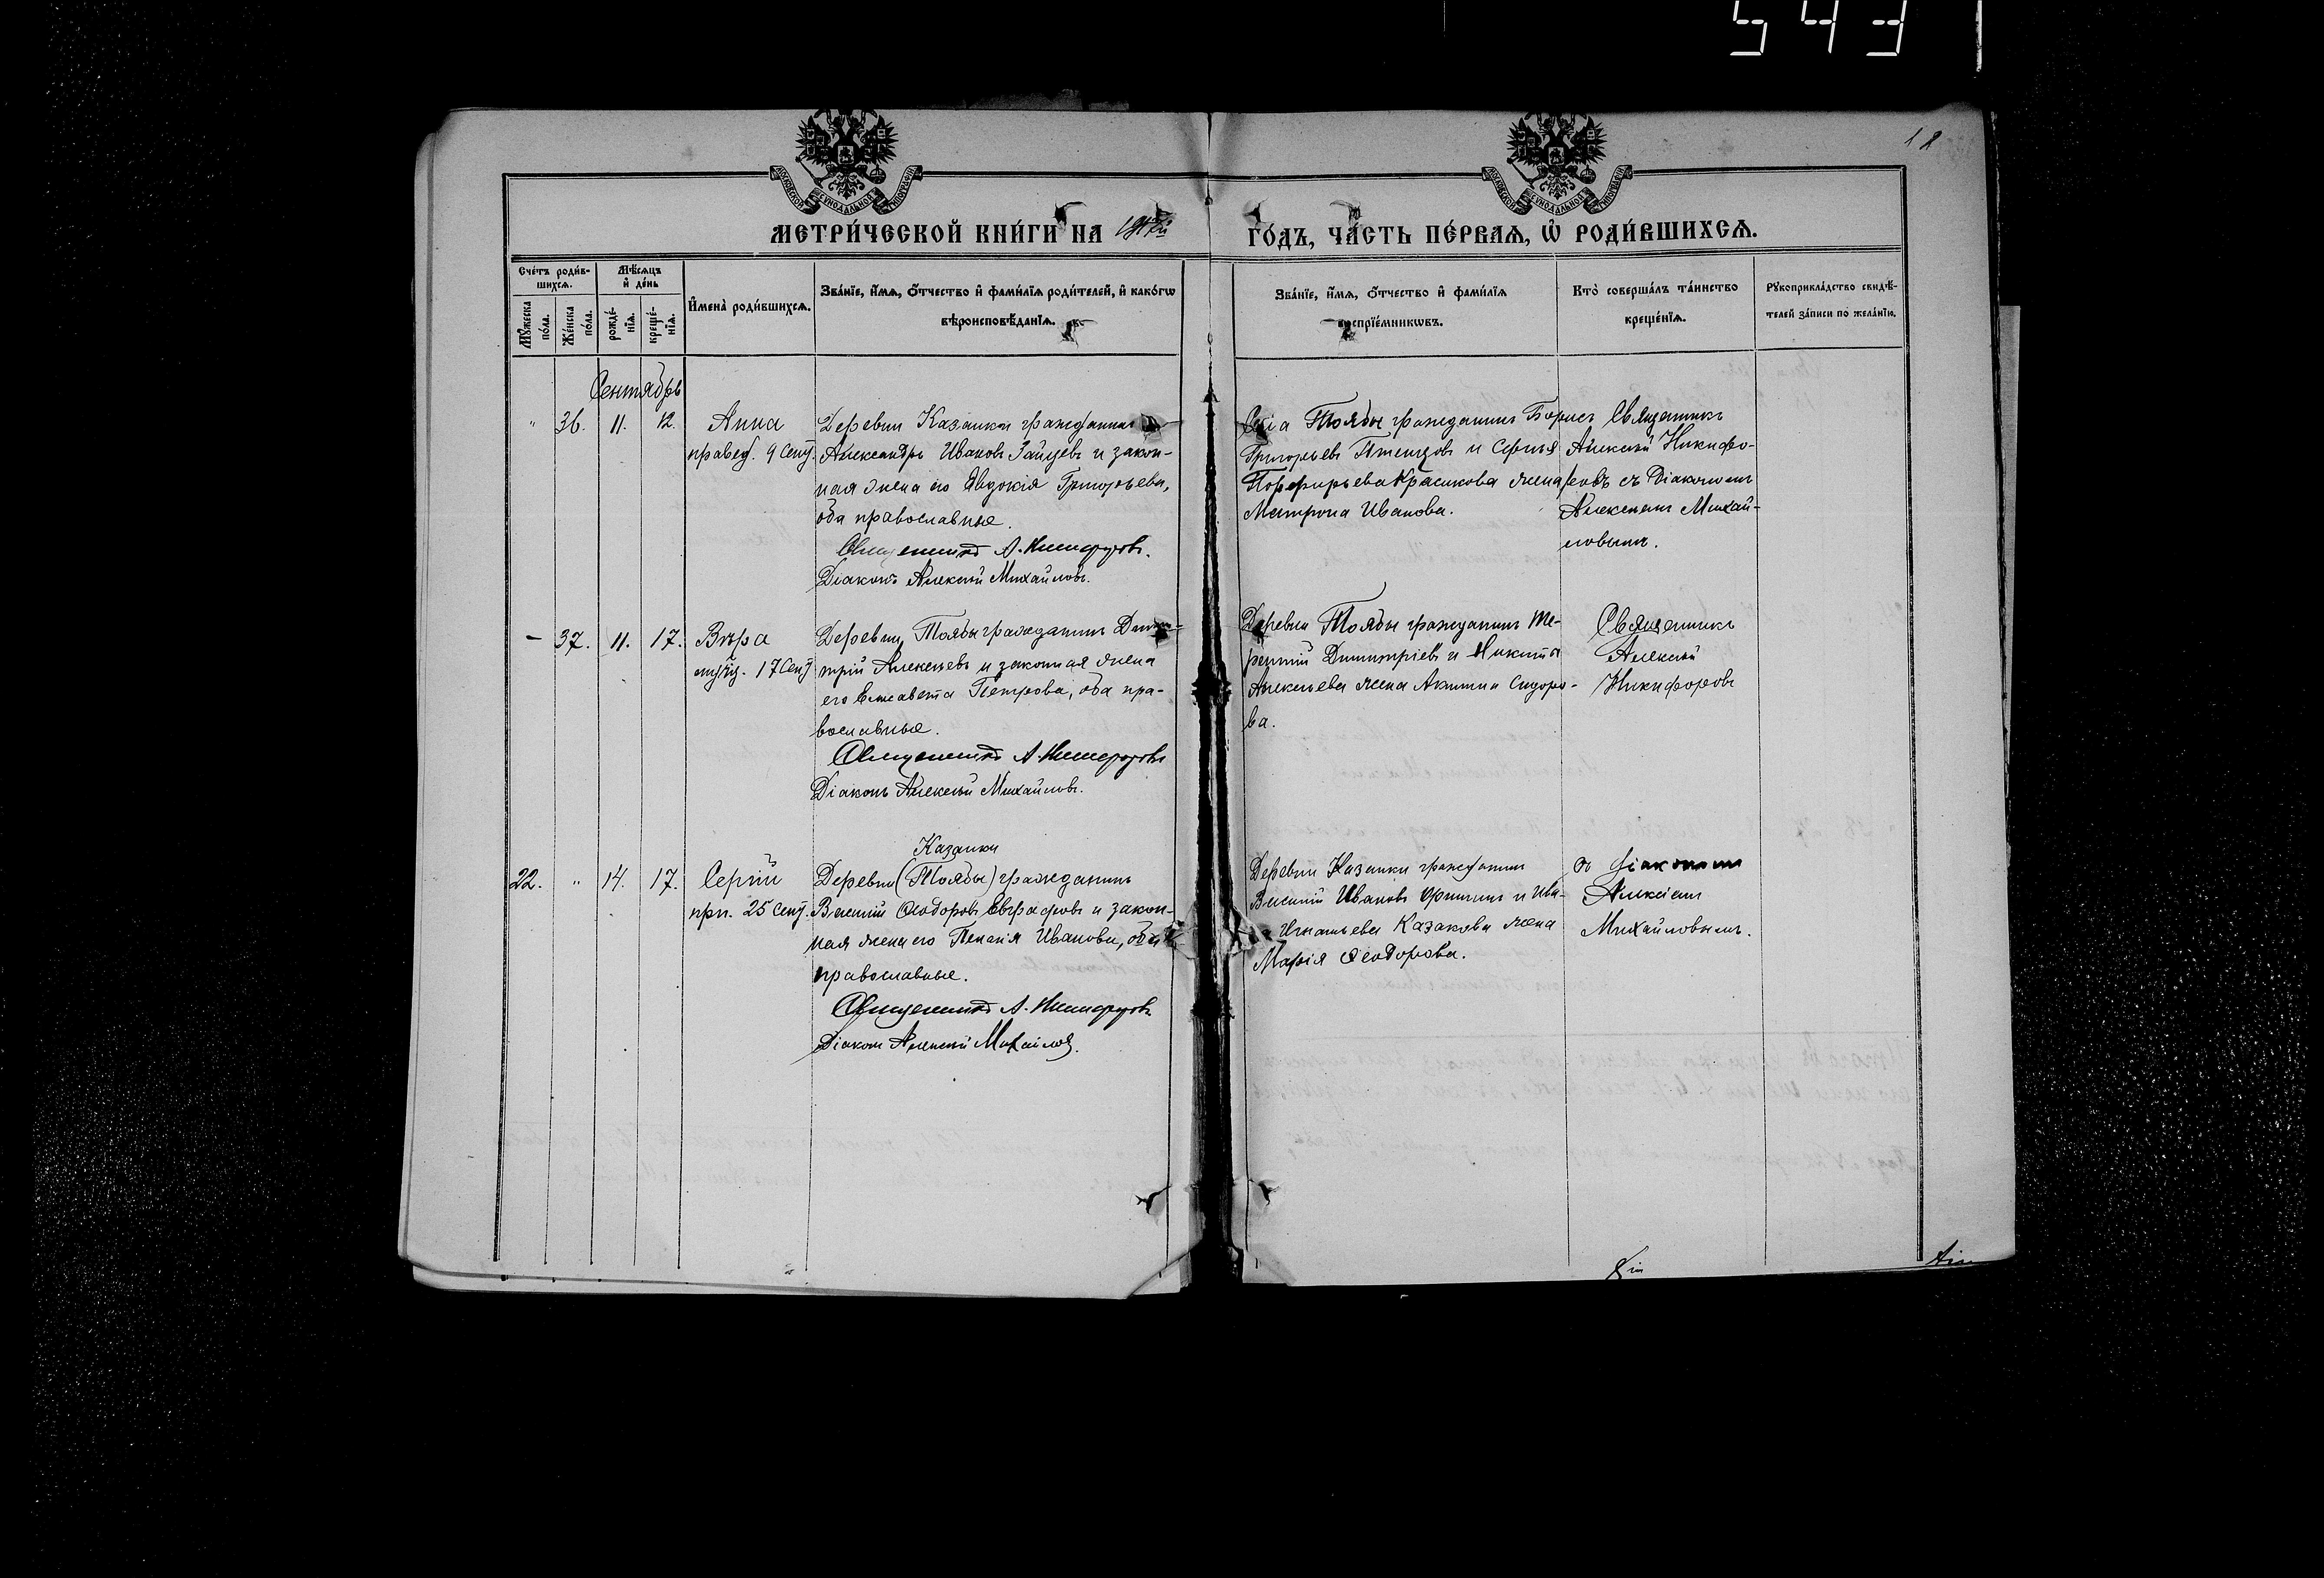 5431
18
МОСКОВСКОЙ СѴНОДАЛЬНОЙ ТИПОГРАФІИ
МОСКОВСКОЙ СѴНОДАЛЬНОЙ ТИПОГРАФІИ
МЕТРИ́ЧЕСКОЙ КНИ́ГИ НА
ГО́ДЪ, ЧА́СТЬ ПЕ́РВАѦ, Ѡ҆ РОДИ́ВШИХСѦ.
Сче́тъ роди́в-
шихсѧ.
Мꙋ́жеска по́ла.
Же́нска по́ла.
Мѣ́сѧцъ и҆ де́нь
рожде́-нїѧ.
креще́-нїѧ.
И҆мена̀ роди́вшихсѧ.
Зва́нїе, и҆́мѧ, ѻ҆́тчество и҆ фами́лїѧ роди́телей, и҆ како́гѡ
вѣроисповѣ́данїѧ.
Зва́нїе, и҆́мѧ, ѻ҆́тчество и҆ фами́лїѧ
воспрїе́мникѡвъ.
Кто̀ соверша́лъ та́инство
креще́нїѧ.
Рꙋкоприкла́дство свидѣ́-
телей за́писи по жела́нїю.
Сентябрь
" 36. 11. 12.
Анна
правед. 9 Сент.
Деревни Казанки гражданинъ
Александръ Ивановъ Зайцевъ и закон-
ная жена его Евдокія Григорьева,
оба православные.
Священникъ А. Никифоровъ.
Діаконъ Алексѣй Михайловъ.
Села Тоябы гражданинъ Борисъ
Григорьевъ Птенцовъ и Сергѣя
Порфирьева Красикова жена
Матрона Иванова.
Священникъ
Алексѣй Никифо-
ровъ съ Діакономъ
Алексѣемъ Михай-
ловымъ.
– 37. 11. 17.
Вѣра
муч. 17 Сент
Деревни Тоябы гражданинъ Дими-
трій Алексѣевъ и законная жена
его Елисавета Петрова, оба пра-
вославные.
Священникъ А. Никифоровъ
Діаконъ Алексѣй Михайловъ.
Деревни Тоябы гражданинъ Те-
рентій Димитріевъ и Никита
Алексѣева жена Акилина Сидоро-
ва.
Священникъ
Алексѣй
Никифоровъ
22. " 14. 17.
Сергій
прп. 25 Сент.
Казанки
Деревни (Тоябы) гражданинъ
Василій Ѳеодоровъ Евграфовъ и закон-
ная жена его Пелагія Иванова, оба
православные.
Священникъ А. Никифоровъ
Діаконъ Алексѣй Михайловъ.
Деревни Казанки гражданинъ
Василій Ивановъ и Ива-
Игнатьева Казакова жена
Марія Ѳеодорова.
съ Діакономъ
Алексѣемъ
Михайловымъ.